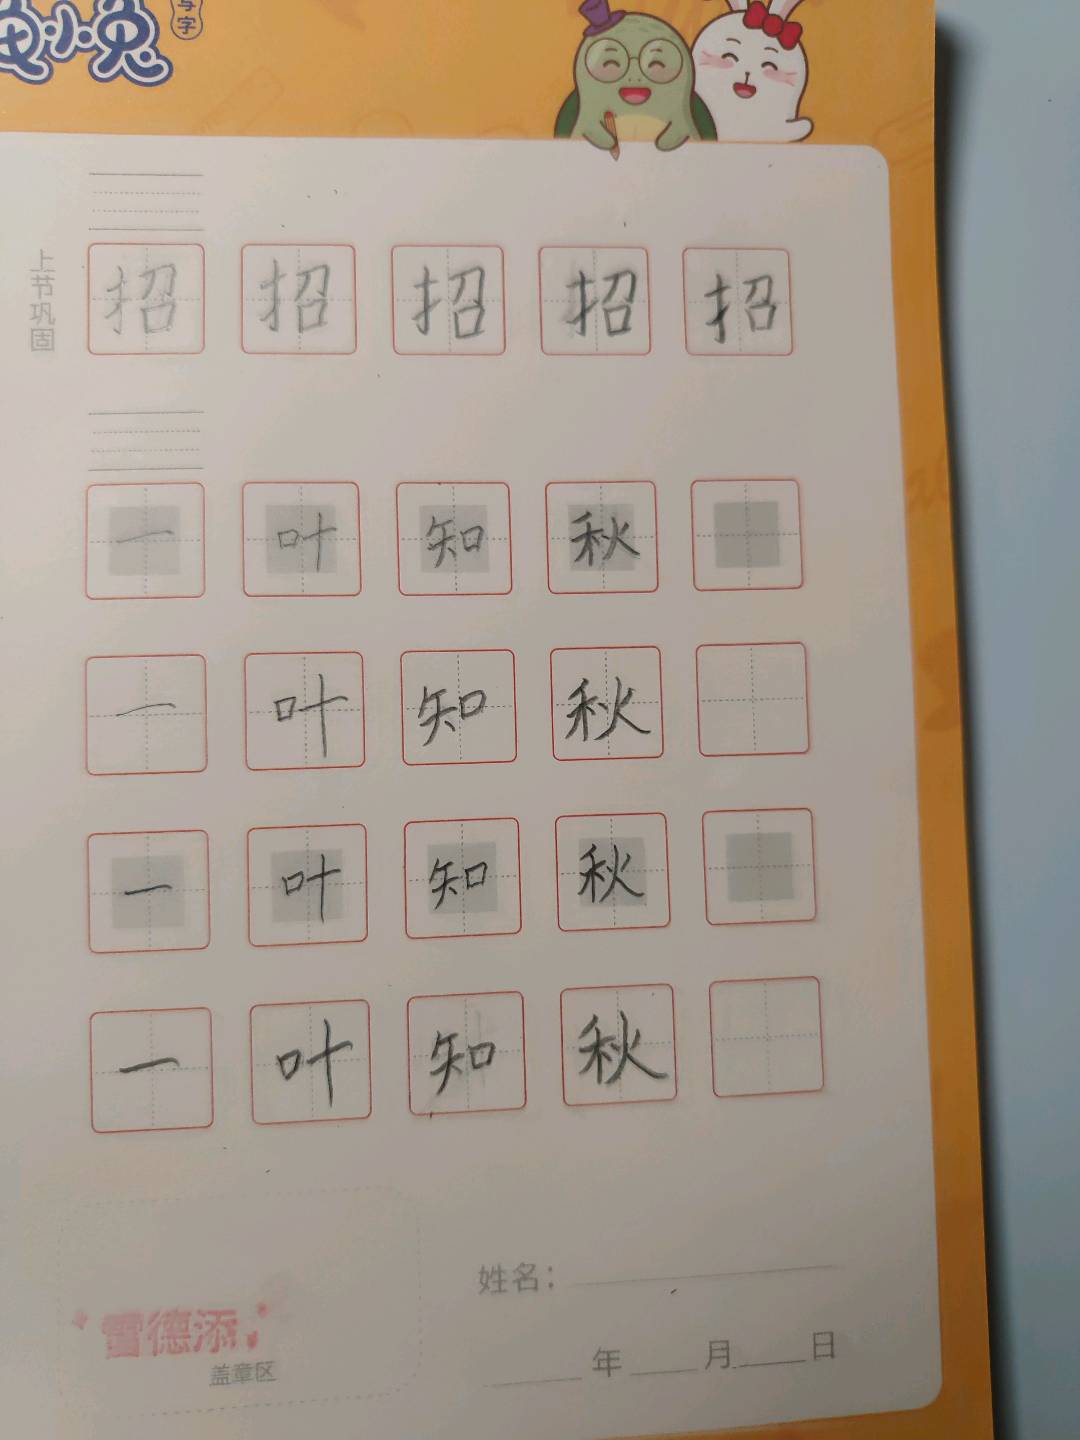 小兔
写字
上节巩固
招 招 招 招 招
一 叶 知 秋
一 叶 知 秋
一 叶 知 秋
一 叶 知 秋
姓名：
雷德添
盖章区
年 月 日